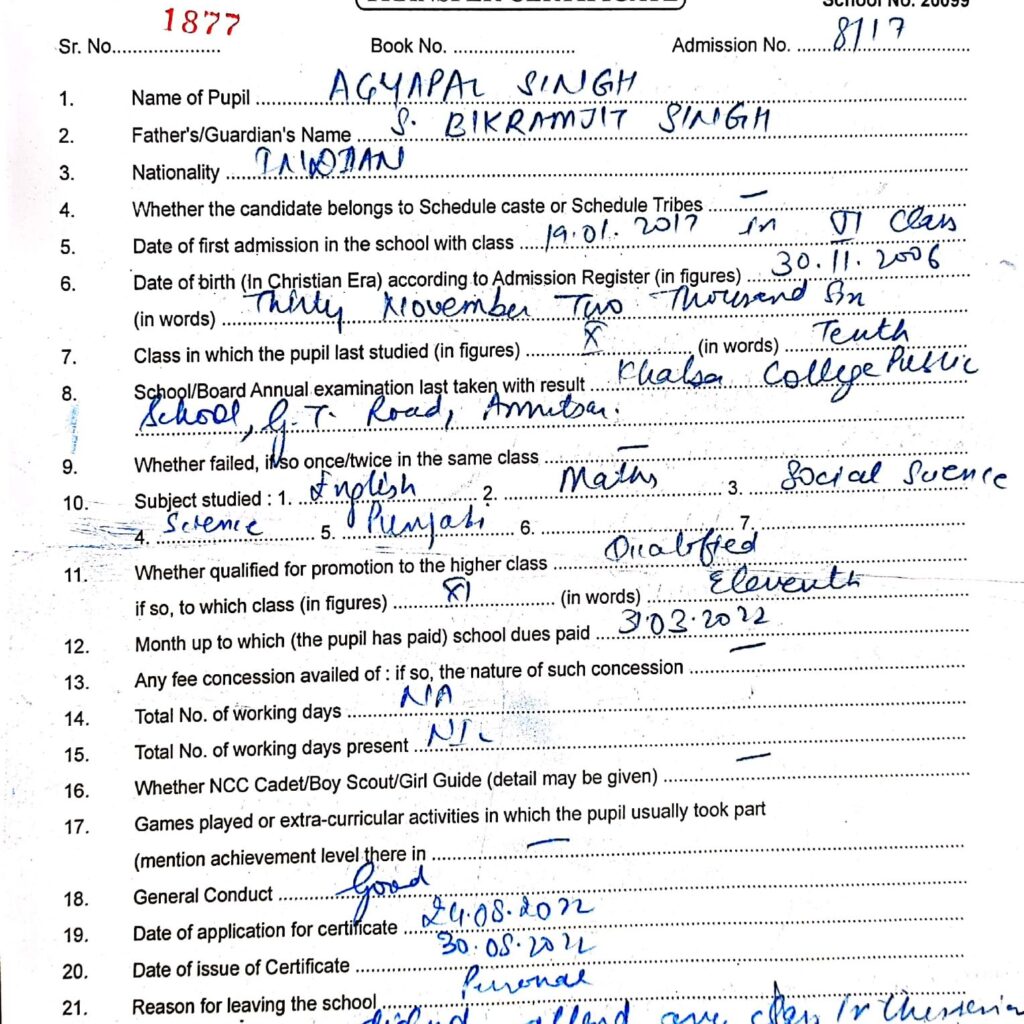 TRANSFER CERTIFICATE
School No. 20099
1877
Sr. No. Book No. Admission No. 8117
1. Name of Pupil AGYAPAL SINGH
2. Father's/Guardian's Name S. BIKRAMJIT SINGH
3. Nationality INDIAN
4. Whether the candidate belongs to Schedule caste or Schedule Tribes —
5. Date of first admission in the school with class 19.01.2017 in VI Class
6. Date of birth (In Christian Era) according to Admission Register (in figures) 30.11.2006
(in words) Thirty November Two Thousand Six
7. Class in which the pupil last studied (in figures) X (in words) Tenth
8. School/Board Annual examination last taken with result Khalsa College Public
School, G.T. Road, Amritsar.
9. Whether failed, if so once/twice in the same class —
10. Subject studied : 1. English 2. Maths 3. Social Science
4. Science 5. Punjabi 6. 7.
11. Whether qualified for promotion to the higher class Qualified
if so, to which class (in figures) XI (in words) Eleventh
12. Month up to which (the pupil has paid) school dues paid 31.03.2022
13. Any fee concession availed of : if so, the nature of such concession —
14. Total No. of working days N/A
15. Total No. of working days present NIL
16. Whether NCC Cadet/Boy Scout/Girl Guide (detail may be given) —
17. Games played or extra-curricular activities in which the pupil usually took part
(mention achievement level there in —
18. General Conduct Good
19. Date of application for certificate 24.08.2022
20. Date of issue of Certificate 30.08.2022
21. Reason for leaving the school Personal
attend any class in